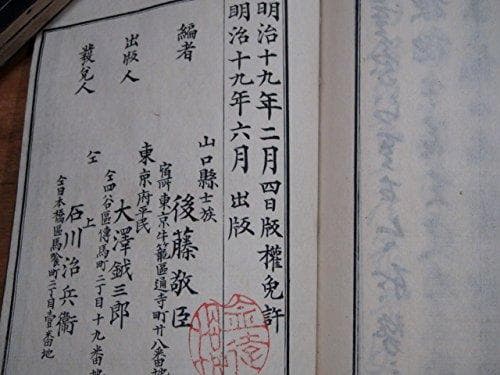 明治十九年二月四日版權免許
明治十九年六月 出版
編者
山口縣士族
後藤敬臣
寄留東京牛籠區通寺町廿八番地
出版人
東京府平民
大澤鉞三郎
仝四谷區傳馬町二丁目十九番地
發兌人
仝 上
石川治兵衞
仝日本橋區馬喰町二丁目壹番地